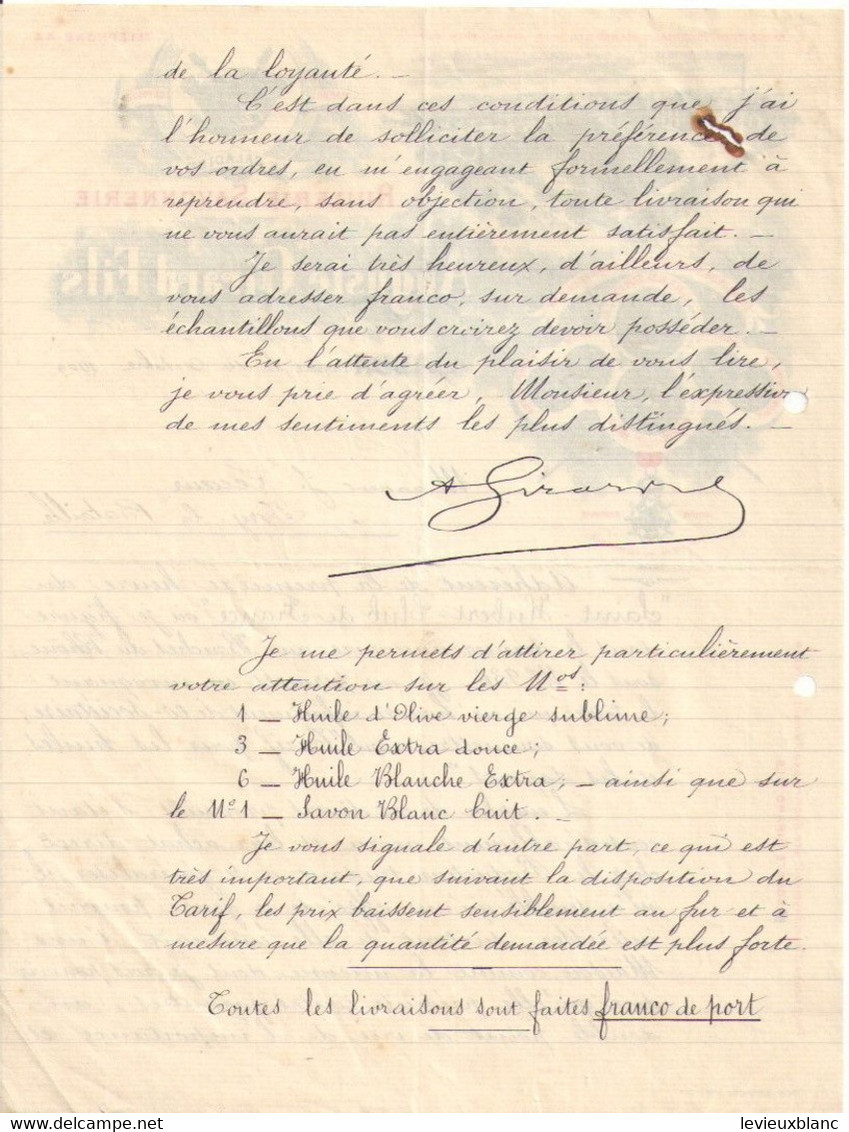 de la loyauté. —
C'est dans ces conditions que j'ai
l'honneur de solliciter la préférence de
vos ordres, en m'engageant formellement à
reprendre, sans objection, toute livraison qui
ne vous aurait pas entièrement satisfait. —
Je serai très heureux, d'ailleurs, de
vous adresser franco, sur demande, les
échantillons que vous croirez devoir posséder. —
En l'attente du plaisir de vous lire,
je vous prie d'agréer, Monsieur, l'expression
de mes sentiments les plus distingués. —
A Girard
Je me permets d'attirer particulièrement
votre attention sur les Nos:
1 — Huile d'Olive vierge sublime;
3 — Huile Extra douce;
6 — Huile Blanche Extra, — ainsi que sur
le No 1 — Savon Blanc Cuit. —
Je vous signale d'autre part, ce qui est
très important, que suivant la disposition du
Tarif, les prix baissent sensiblement au fur et à
mesure que la quantité demandée est plus forte.
Toutes les livraisons sont faites franco de port
Delcampe.net
levieuxblanc